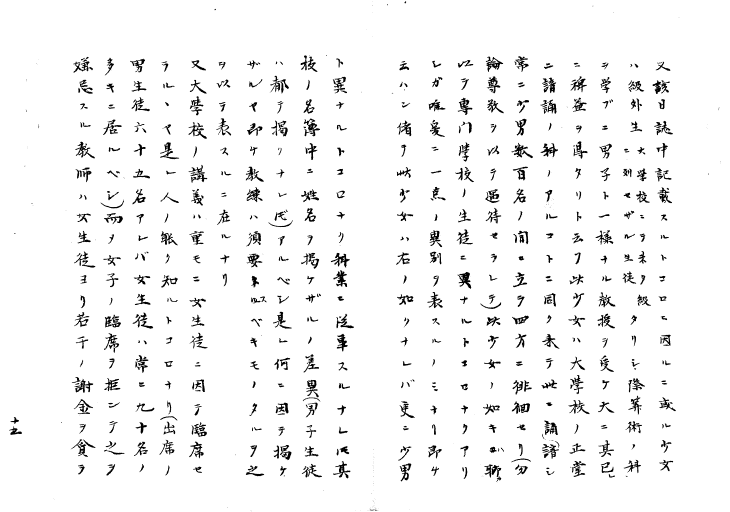 又該日誌中記載スルトコロニ因ルニ或ル少女
ハ級外生大学校ニヲキタ級ニ列セザル生徒タリシ際算術ノ科
ヲ学ブニ男子ト一様ナル教授ヲ受ケ大ニ其已
ニ稗益ヲ得タリト云フ此少女ハ大学校ノ正堂
ニ諳誦ノ科ノアルコトニ同ク来テ此ニ誦諳シ
常ニ少男数百名ノ間ニ立テ四方ニ徘徊セリ(勿
論尊敬ヲ以テ遇待セラレテ)此少女ノ如キガ聯
以テ専门学校ノ生徒ニ異ナルトコロナクアリ
シガ唯爰ニ一点ノ異別ヲ表スルノミナリ即ケ
云ハン偖テ此少女ハ右ノ如クナレバ更ニ少男
ト異ナルトコロナク科業ニ従事スルナレ𪜈其
校ノ名簿中ニ姓名ヲ掲ケザルノ差異(男子生徒
ハ都テ掲クナレ𪜈)アルベシ是レ何ニ因テ掲ケ
ザルヤ即ケ教練ハ須要トスベキモノタルヲ之
ヲ以テ表スルニ在ルナリ
又大学校ノ講義ハ重モニ女生徒ニ因テ臨席セ
ラルヽヤ是レ人ノ能ク知ルトコロナリ(出席ノ
男生徒六十五名アレバ女生徒ハ常ニ九十名ノ
多キニ居ルベシ)而メ女子ノ臨席ヲ拒ンテ之ヲ
嫌忌スル教師ハ女生徒ヨリ若干ノ謝金ヲ貪ヲ
十五